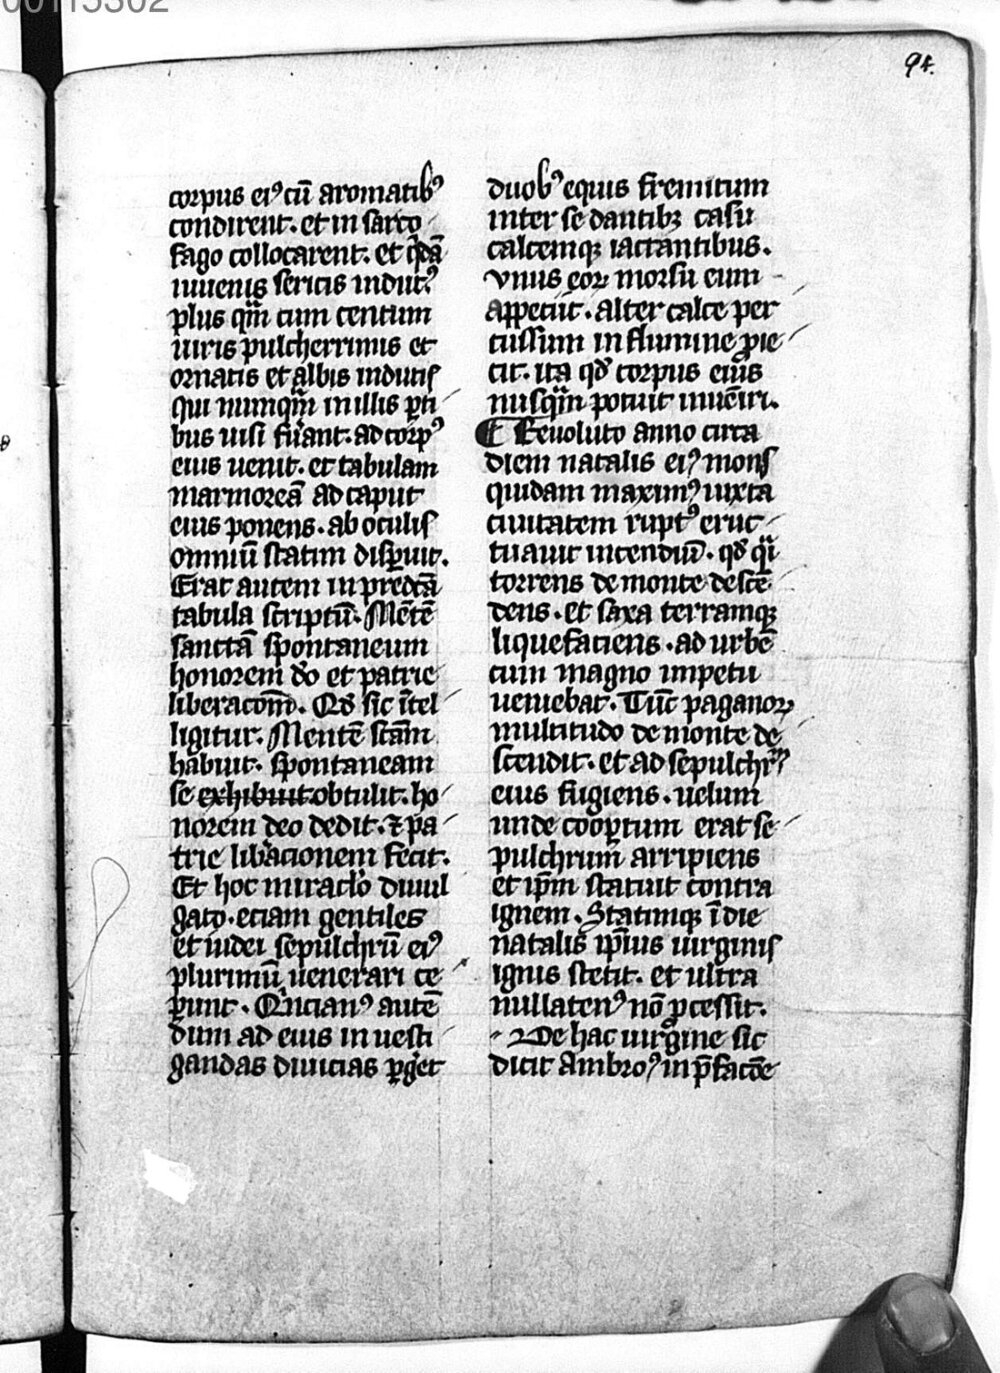 00113302
94.
corpus eiꝰ cū aromatibꝰ
condirent. et in sarco
fago collocarent. et q̄dā
iuuenis sericis indutꝰ
plus qm̄ cum centum
uiris pulcherrimis et
ornatis et albis indutis
qui numqm̄ in illis ꝑti
bus uisi fuant. ad corpꝰ
eius uenit. et tabulam
marmoreā ad caput
eius ponens. ab oculis
omniū statim disꝑuit.
Erat autem in predcā
tabula scriptū. Mētē
sanctā spontaneum
honorem do et patrie
liberacom̄. Qd sic ītel
ligitur. Mentē scām
habuit. spontaneam
se exhibuit obtulit. ho
norem deo dedit. ⁊ pa
trie libacionem fecit.
Et hoc miraclo diuul
gato. eciam gentiles
et iudei sepulchrū eiꝰ
plurimū uenerari ce
ꝑunt. Qncianꝰ autē
dum ad eius inuesti
gandas diuicias ꝑget
duobꝰ equis fremitum
inter se dantibꝫ casu
calcemqꝫ iactantibus.
vnus eoꝝ morsu eum
appeciit. alter calce per
cussum in flumine ꝓie
cit. ita qd̄ corpus eius
nusqm̄ potuit inuēiri.
¶ Reuoluto anno circa
diem natalis eiꝰ mons
quidam maximꝰ iuxta
ciuitatem ruptꝰ eruc
tuauit incendiū. qd̄ q̄i
torrens de monte descē
dens. et saxa terramqꝫ
liquefaciens. ad urbē
cum magno impetu
ueniebat. Tūc paganoꝝ
multitudo de monte de
scendit. et ad sepulchr̄
eius fugiens. uelum
unde cooꝑtum erat se
pulchrum arripiens
et ip̄m statuit contra
ignem. Statimqꝫ ī die
natalis ip̄ius uirginis
ignis stetit. et ultra
nullatenꝰ nō ꝓcessit.
De hac uirgine sic
dicit Ambroꝰ in p̄facōe